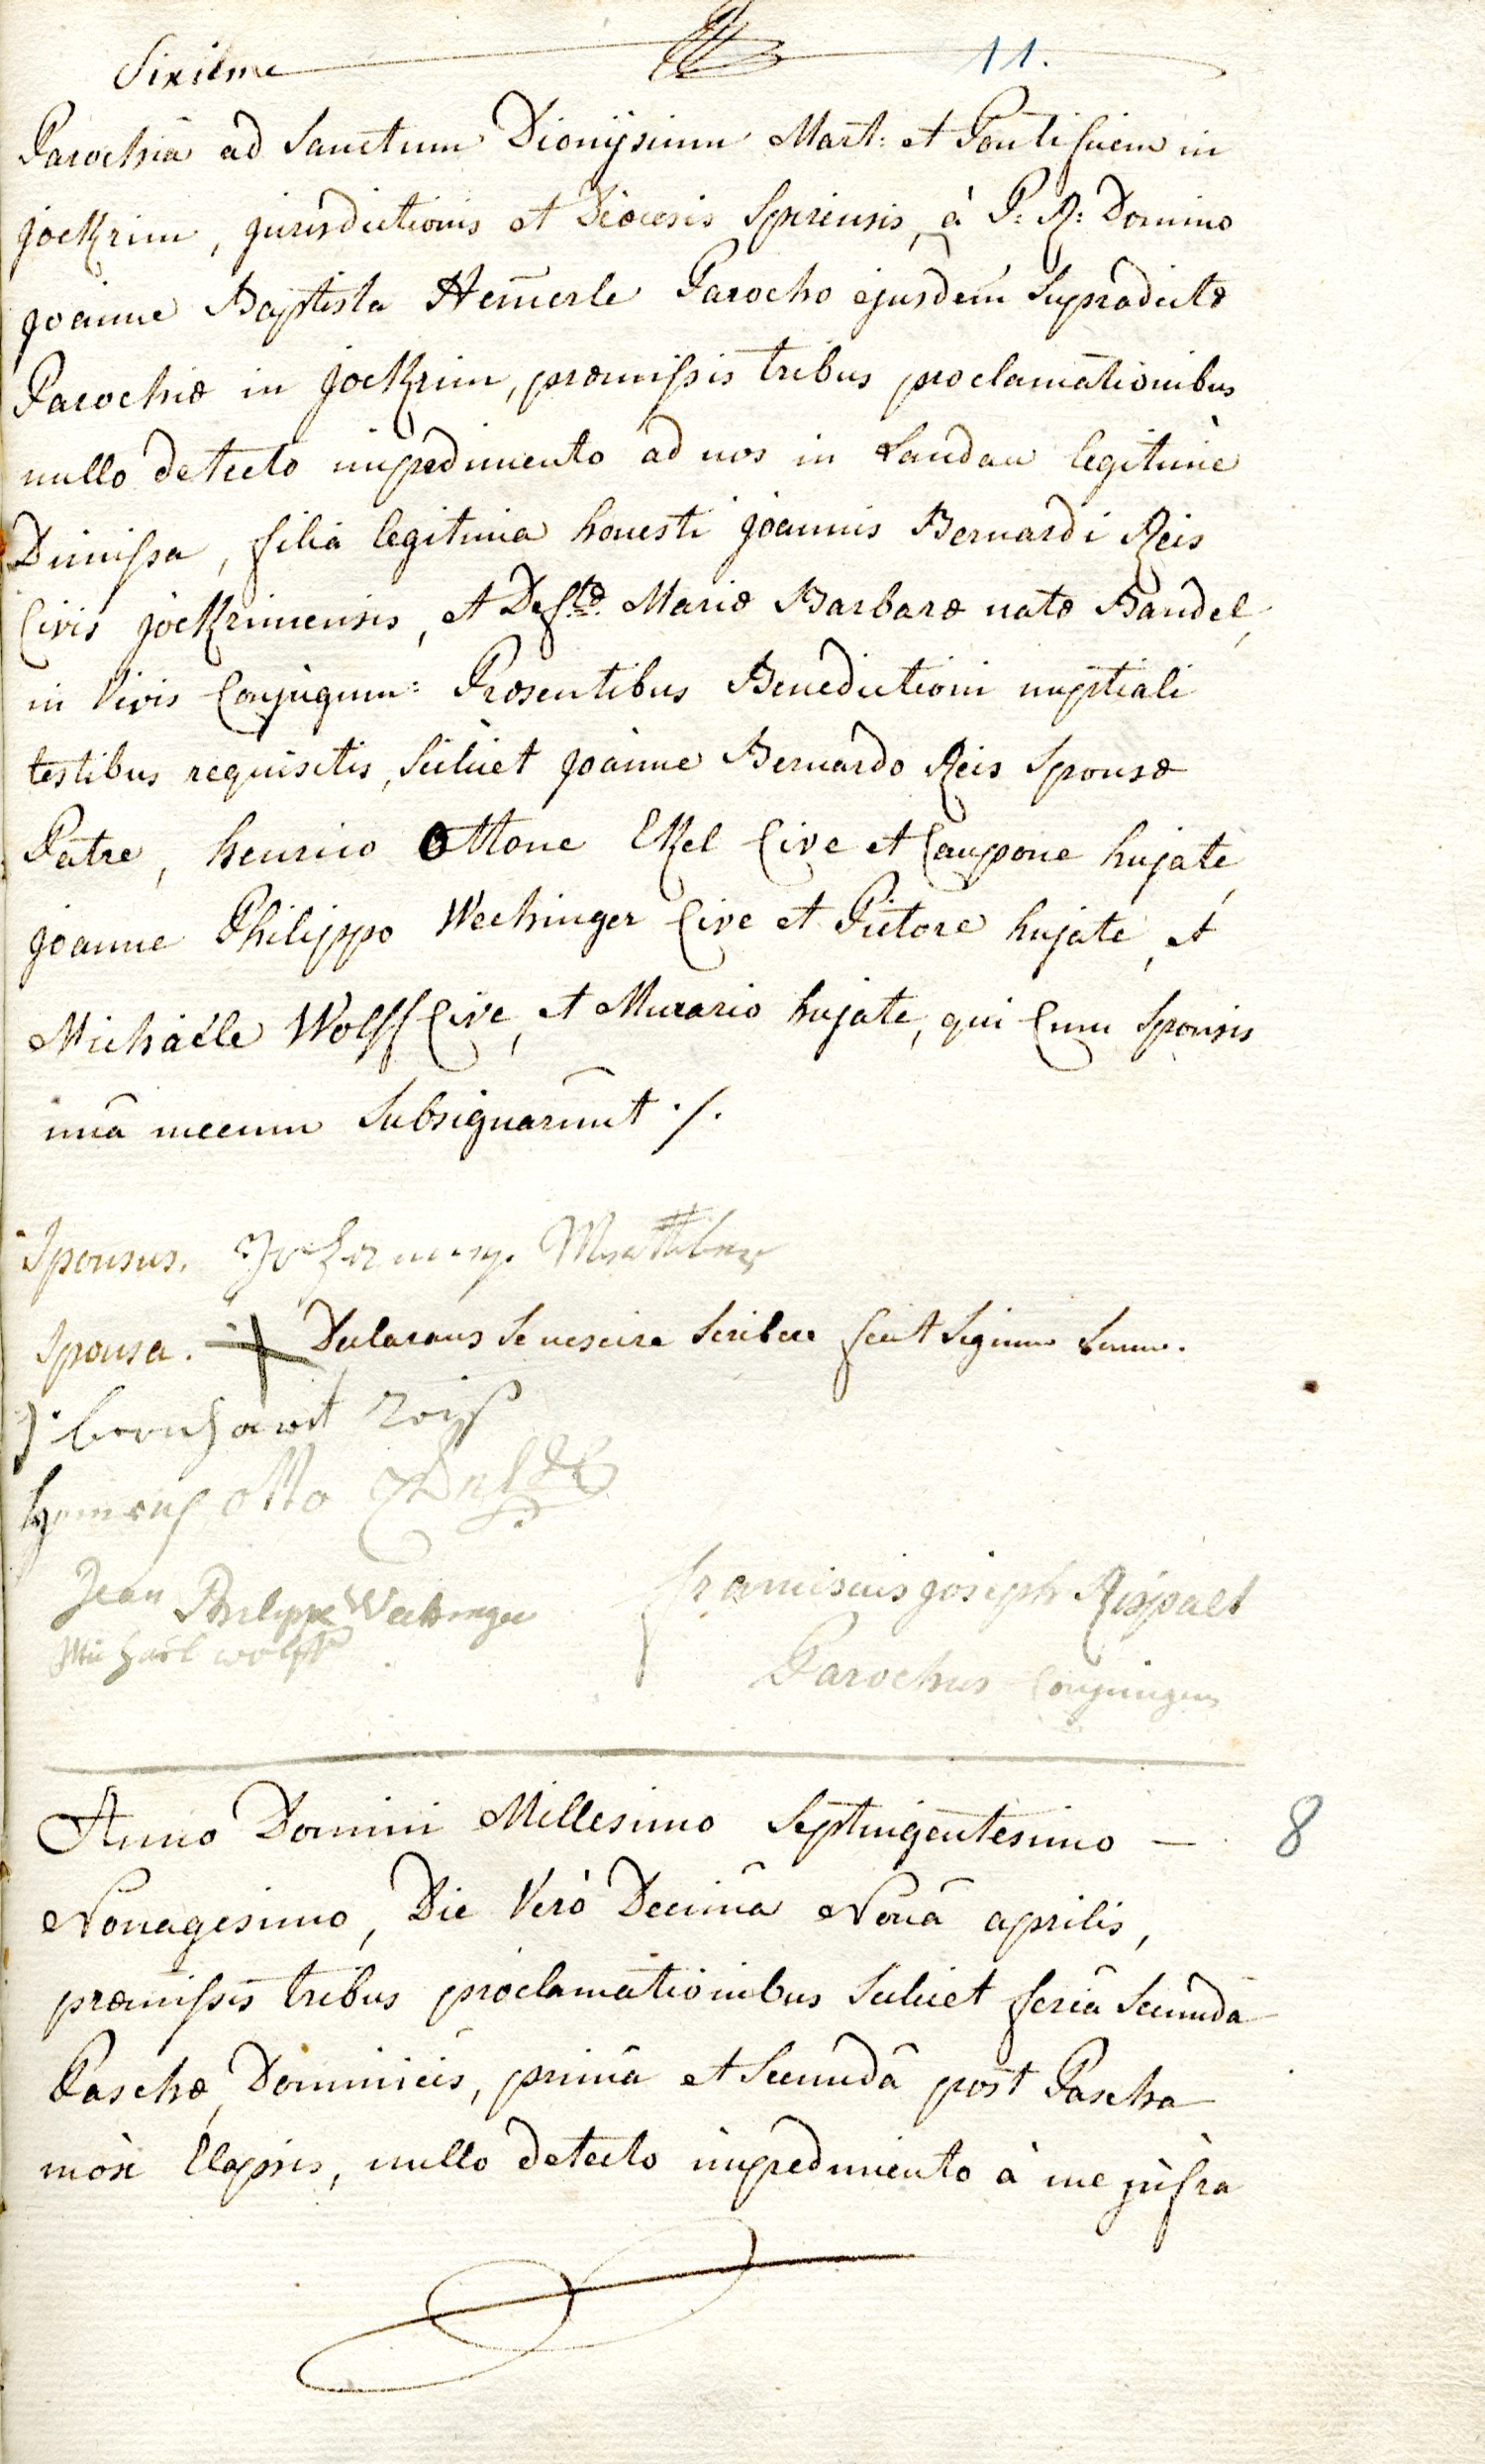 Sixiéme 11.
Parochiâ ad Sanctum Dionÿsium Mart: et Pontificem in
jockrim, jurisdictionis et Diœcesis Spirensis, à P: R: Domino
joanne Baptista Hem̄erle Parocho ejusdem supradictæ
Parochiæ in jockrim, præmissis tribus proclamationibus
nullo detecto impedimento ad nos in Landau legitimè
Dimissa, filia legitima honesti joannis Bernardi Reis
Civis jockrimensis, et Defctæ Mariæ Barbaræ natæ Bandel,
in Vivis Conjugum: Præsentibus Benedictioni nuptiali
testibus requisitis, Scilicet joanne Bernardo Reis Sponsæ
Patre, henrico Ottone Ekel Cive et Caupone hujate,
joanne Philippo Wechinger Cive et Pictore hujate, et
Michaële Wolff Cive, et Murario hujate, qui Cum Sponsis
unâ mecum Subsignarunt ./.
Sponsus.
Sponsa. + Declarans se nescire scribere fecit signum suum.
J. bernhard Reiß
Henrich otto
Jean Philippe Wechinger franciscus joseph Rispalt
Michael wolff Parochus Conjungens
Anno Domini Millesimo Septingentesimo — 8
Nonagesimo, Die Verò Decimâ Nonâ aprilis,
præmissis tribus proclamationibus Scilicet feriâ Secundâ
Paschæ, Dominicis, primâ et Secundâ post Pascha
mòx Elapsis, nullo detecto impedimento à me jnfra